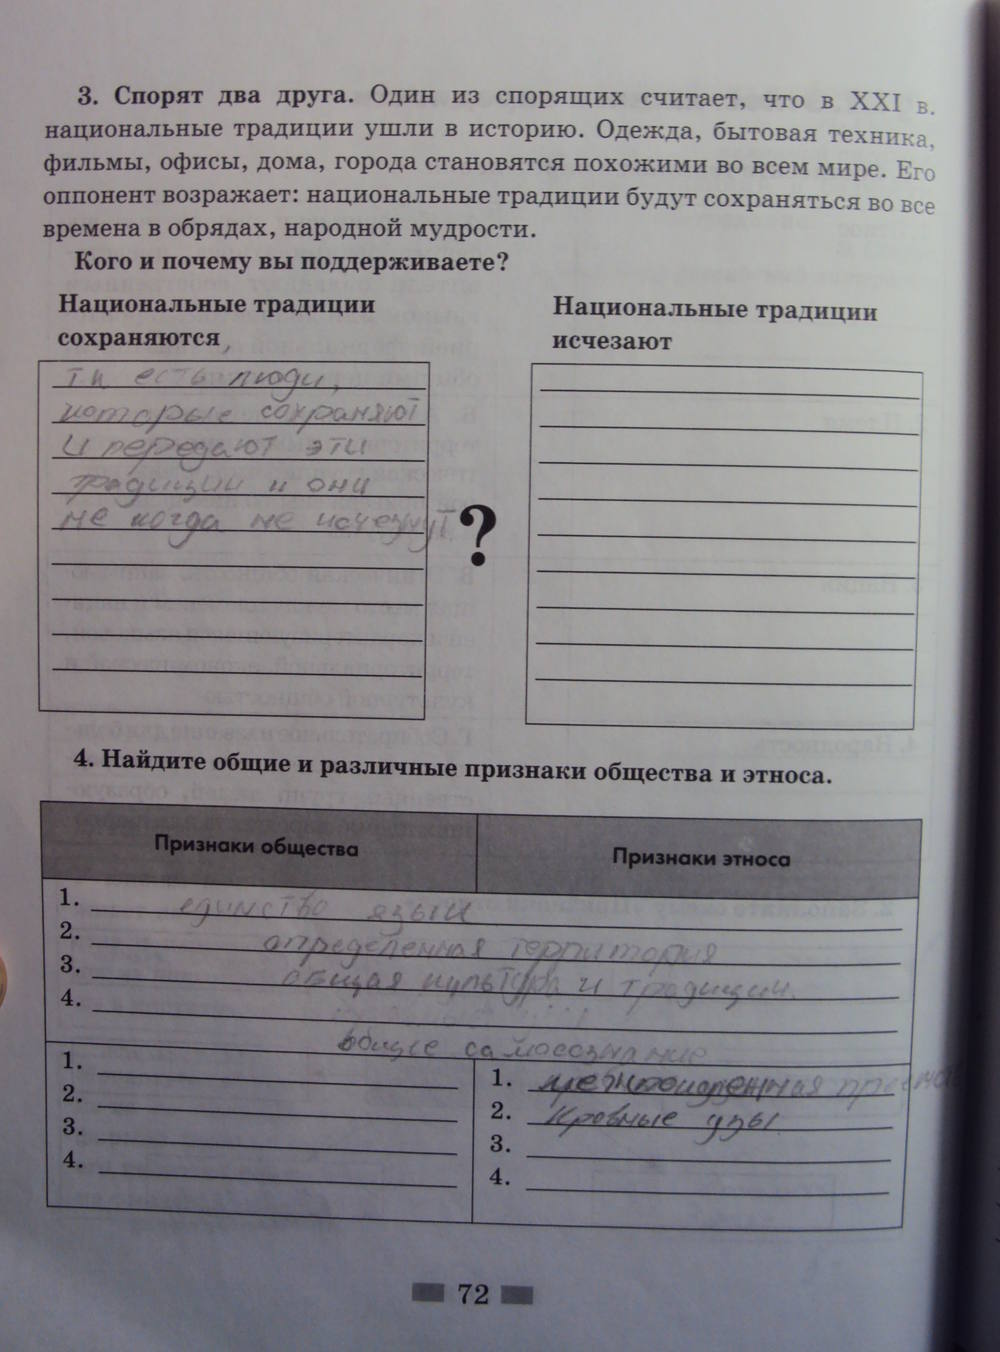 3. Спорят два друга. Один из спорящих считает, что в XXI в.
национальные традиции ушли в историю. Одежда, бытовая техника,
фильмы, офисы, дома, города становятся похожими во всем мире. Его
оппонент возражает: национальные традиции будут сохраняться во все
времена в обрядах, народной мудрости.
Кого и почему вы поддерживаете?
Национальные традиции
сохраняются
Национальные традиции
исчезают
т к есть люди,
которые сохраняют
и передают эти
традиции и они
не когда не исчезнут
?
4. Найдите общие и различные признаки общества и этноса.
Признаки общества
Признаки этноса
1. единство языка
2. определенная территория
3. общая культура и традиции.
4.
общие самосознание
1.
2.
3.
4.
1.
2. Кровные узы.
3.
4.
72